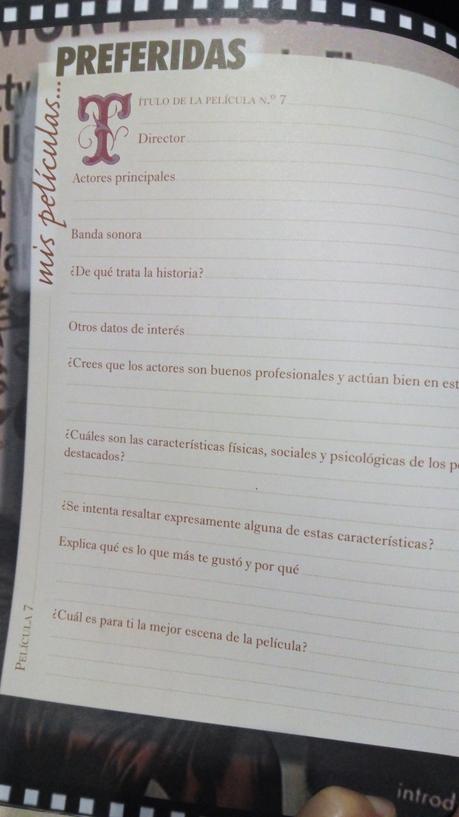 PREFERIDAS
mis películas...
TÍTULO DE LA PELÍCULA N.º 7
Director
Actores principales
Banda sonora
¿De qué trata la historia?
Otros datos de interés
¿Crees que los actores son buenos profesionales y actúan bien en est
¿Cuáles son las características físicas, sociales y psicológicas de los p
destacados?
¿Se intenta resaltar expresamente alguna de estas características?
Explica qué es lo que más te gustó y por qué
¿Cuál es para ti la mejor escena de la película?
PELÍCULA 7
introd